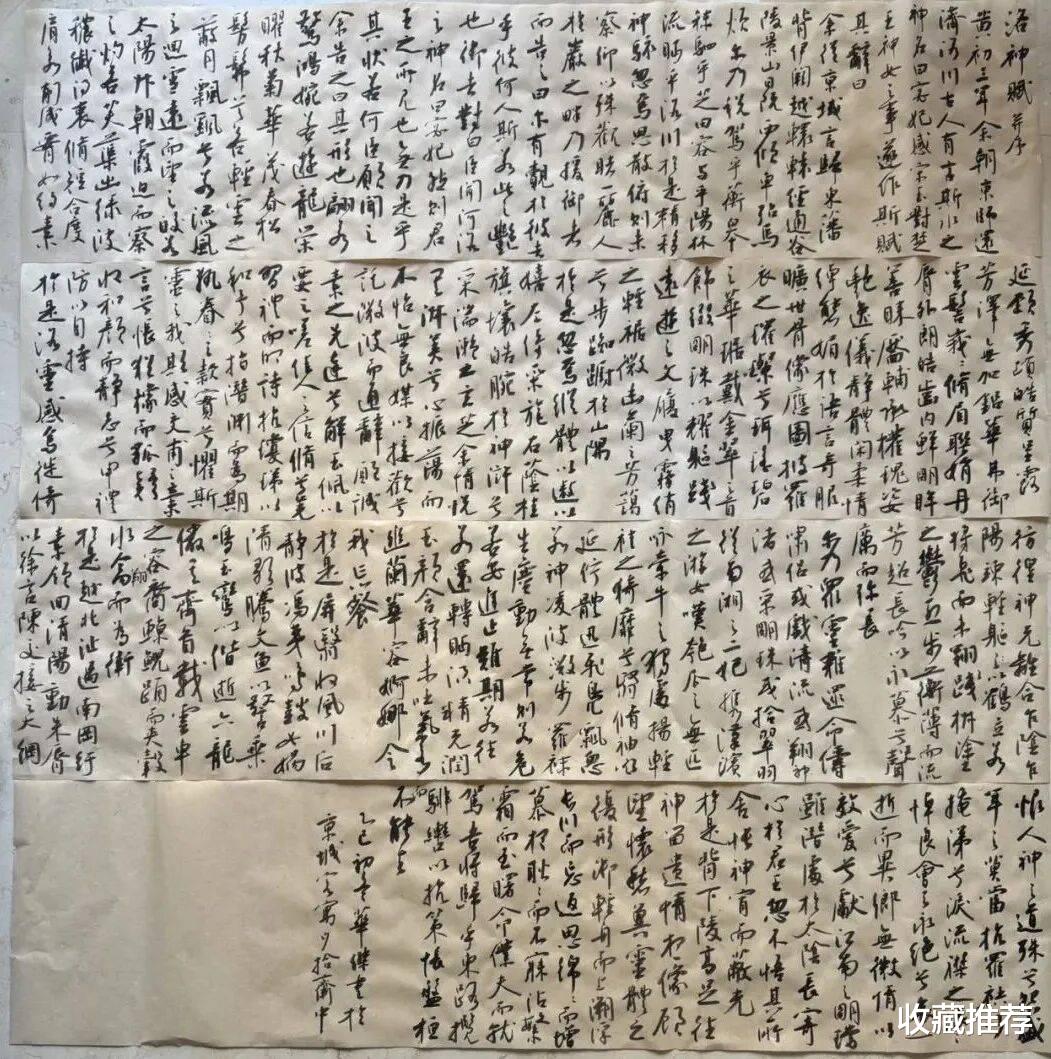 洛神賦并序
黃初三年余朝京師還
濟洛川古人有言斯水之
神名曰宓妃感宋玉對楚
王神女之事遂作斯賦
其辭曰
余從京域言歸東藩
背伊闕越轘轅經通谷
陵景山日既西傾車殆馬
煩爾乃税駕乎蘅皋
秣駟乎芝田容與乎陽林
流眄乎洛川於是精移
神駭忽焉思散俯則未
察仰以殊觀睹一麗人
於巖之畔乃援御者
而告之曰尔有覿於彼者
乎彼何人斯若此之艷
也御者對曰臣聞河洛
之神名曰宓妃然則君
王之所見也無乃是乎
其狀若何臣願聞之
余告之曰其形也翩若
驚鴻婉若遊龍榮
曜秋菊華茂春松
髣髴兮若輕雲之
蔽月飄飄兮若流風
之迴雪遠而望之皎若
太陽升朝霞迫而察
之灼若芙蕖出淥波
穠纖得衷脩短合度
肩若削成腰如約素
延頸秀項皓質呈露
芳澤無加鉛華弗御
雲髻峩峩脩眉聯娟丹
脣外朗皓齒內鮮明眸
善睞靨輔承權瑰姿
艷逸儀靜體閑柔情
綽態媚於語言奇服
曠世骨像應圖披羅
衣之璀粲兮珥瑤碧
之華琚戴金翠之首
飾綴明珠以耀軀踐
遠遊之文履曳霧綃
之輕裾微幽蘭之芳藹
兮步踟躕於山隅
於是忽焉縱體以遨以
嬉左倚采旄右蔭桂
旗攘皓腕於神滸兮
采湍瀨之玄芝余情悅
其淑美兮心振蕩而
不怡無良媒以接歡兮
託微波而通辭願誠
素之先達兮解玉佩以
要之嗟佳人之信脩羌
習禮而明詩抗瓊珶以
和予兮指潛淵而為期
執眷之款實兮懼斯
靈之我欺感交甫之棄
言兮悵猶豫而狐疑
收和顏而靜志兮申禮
防以自持
於是洛靈感焉徙倚
彷徨神光離合乍陰乍
陽竦輕軀以鶴立若
將飛而未翔踐椒塗
之鬱烈步蘅薄而流
芳超長吟以永慕兮聲哀
厲而弥長
爾乃眾靈雜遝命儔
嘯侶或戲清流或翔神
渚或采明珠或拾翠羽
從南湘之二妃攜漢濱
之游女嘆匏瓜之無匹
詠牽牛之獨處揚輕
袿之猗靡兮翳脩袖以
延佇體迅飛鳧飄忽
若神凌波微步羅襪
生塵動無常則若危
若安進止難期若往
若還轉眄流精光潤
玉顏含辭未吐氣若
幽蘭華容婀娜令
我忘餐
於是屏翳收風川后
靜波馮夷鳴鼓女媧
清歌騰文魚以警乘
鳴玉鸞以偕逝六龍
儼其齊首載雲車
之容裔鯨鯢踊而夾轂
水禽翔而為衛
於是越北沚過南岡紆
素領回清陽動朱脣
以徐言陳交接之大綱
恨人神之道殊兮怨盛
年之莫當抗羅袂以
掩涕兮淚流襟之浪浪
悼良會之永絕兮哀一
逝而異鄉無微情以
效愛兮獻江南之明璫
雖潛處於太陰長寄
心於君王忽不悟其所
舍悵神宵而蔽光
於是背下陵高足往
神留遺情想像顧
望懷愁冀靈體之
復形御輕舟而上溯浮
長川而忘返思綿綿而增
慕夜耿耿而不寐沾繁
霜而至曙命僕夫而就
駕吾將歸乎東路攬
騑轡以抗策悵盤桓
而不能去
乙巳初春華傑書於
京城客寓夕拾齋中
收藏推荐